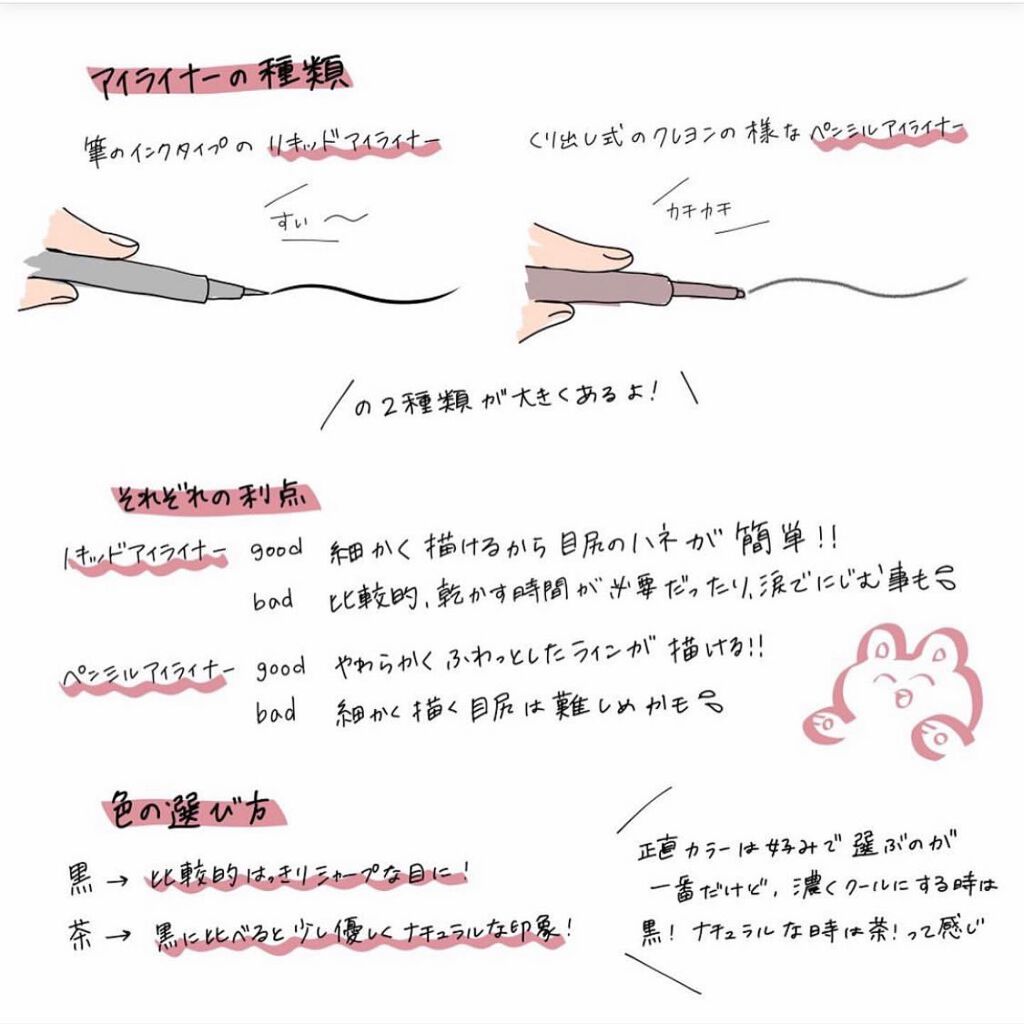 アイライナーの種類
筆のインクタイプの リキッドアイライナー
くり出し式のクレヨンの様な ペンシルアイライナー
すい〜
カチカチ
の2種類が大きくあるよ!
それぞれの利点
リキッドアイライナー good 細かく描けるから目尻のハネが簡単!!
bad 比較的、乾かす時間が必要だったり、涙でにじむ事も
ペンシルアイライナー good やわらかくふわっとしたラインが描ける!!
bad 細かく描く目尻は難しめかも
色の選び方
黒 → 比較的はっきりシャープな目に!
茶 → 黒に比べると少し優しくナチュラルな印象!
正直カラーは好みで選ぶのが
一番だけど、濃くクールにする時は
黒! ナチュラルな時は茶!って感じ